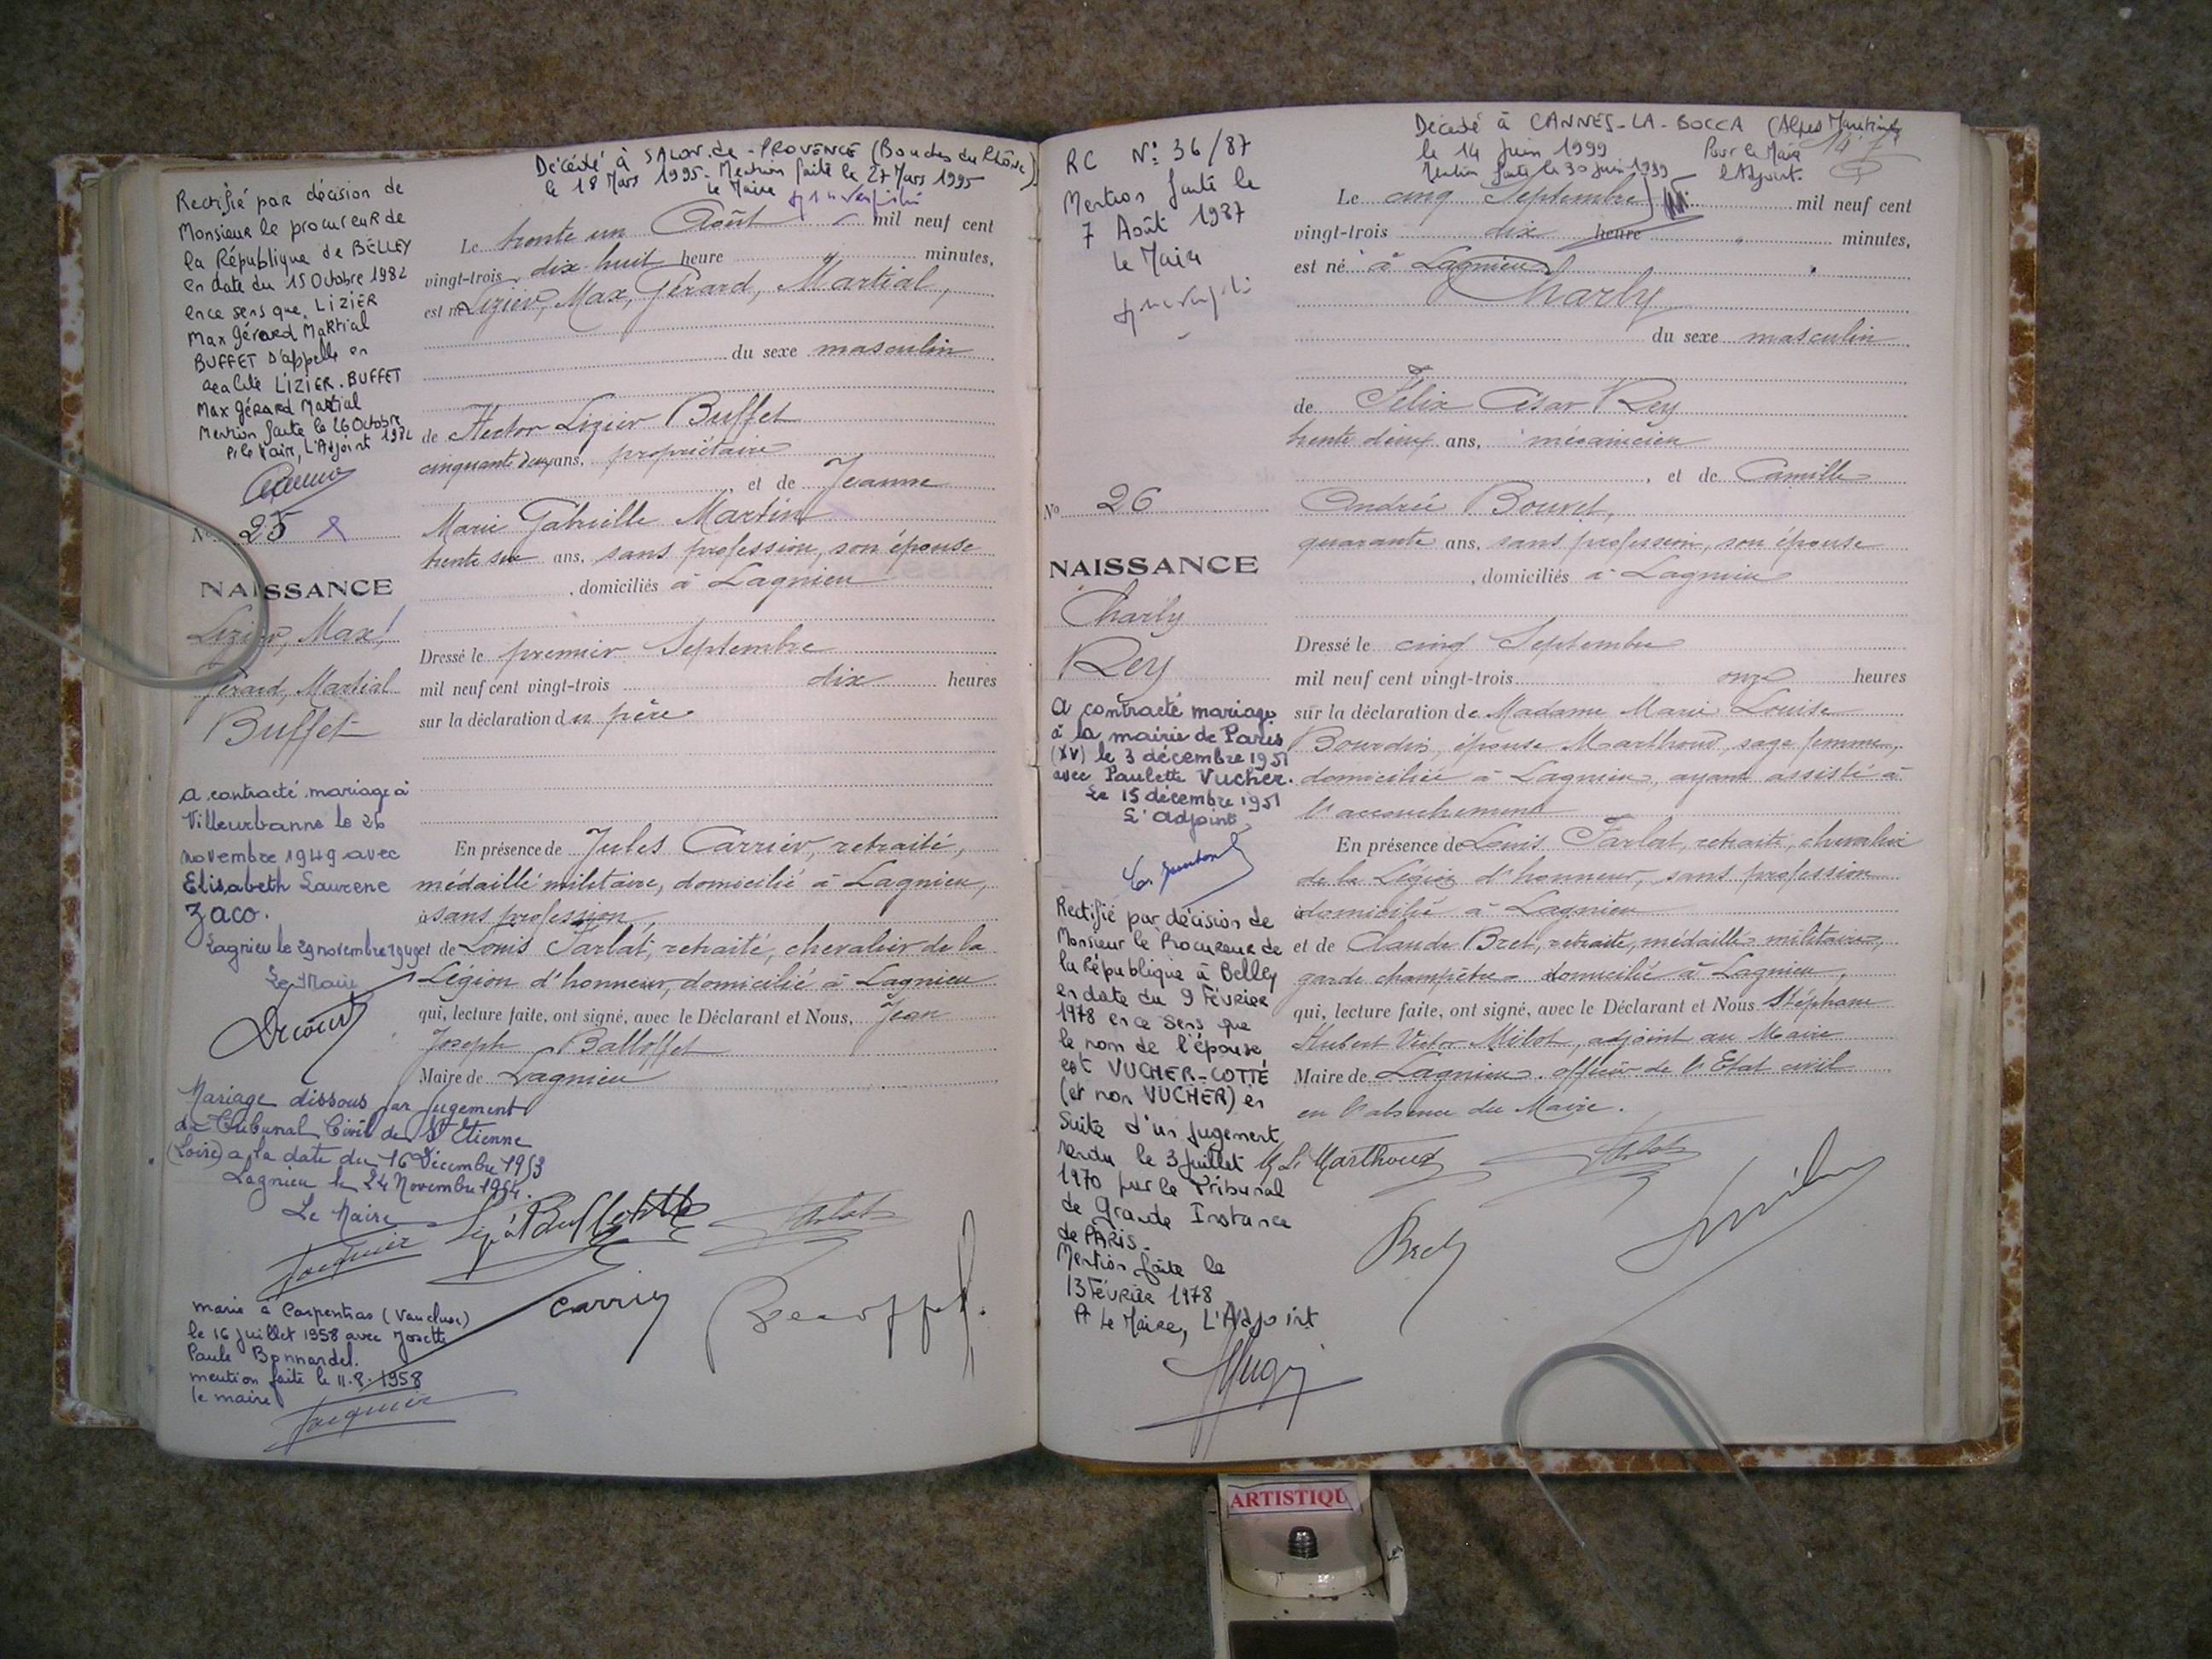 Décédé à SALON-de-PROVENCE (Bouches du Rhône)
le 18 Mars 1995. Mention faite le 27 Mars 1995
le Maire
Rectifié par décision de
Monsieur le procureur de
la République de BELLEY
en date du 15 Octobre 1982
en ce sens que LIZIER
Max Gérard Martial
BUFFET s'appelle en
réalité LIZIER-BUFFET
Max Gérard Martial
Mention faite le 26 Octobre 1982
P. le Maire, L'Adjoint
No 25
NAISSANCE
Lizier, Max,
Gérard, Martial
Buffet
a contracté mariage à
Villeurbanne le 26
novembre 1949 avec
Elisabeth Laurene
Zaco.
Lagnieu le 29 novembre 1949
Le Maire
Mariage dissous par jugement
du Tribunal Civil de St Etienne
(Loire) a la date du 16 Décembre 1953
Lagnieu le 24 Novembre 1954.
Le Maire
Jacquier
marié à Carpentras (Vaucluse)
le 16 juillet 1958 avec Josette
Paule Bonnardel.
mention faite le 11.8.1958
le maire
Jacquier
Le trente un Août mil neuf cent
vingt-trois dix huit heure minutes,
est né Lizier, Max, Gérard, Martial,
du sexe masculin
de Hector Lizier Buffet
cinquante deux ans, propriétaire
, et de Jeanne
Marie Gabrielle Martin
trente six ans, sans profession, son épouse
, domiciliés à Lagnieu
Dressé le premier Septembre
mil neuf cent vingt-trois dix heures
sur la déclaration du père
En présence de Jules Carrier, retraité,
médaillé militaire, domicilié à Lagnieu,
à sans profession,
et de Louis Farlat, retraité, chevalier de la
Légion d'honneur, domicilié à Lagnieu
qui, lecture faite, ont signé, avec le Déclarant et Nous, Jean
Joseph Balloffet
Maire de Lagnieu
Carrier
Décédé à CANNES-LA-BOCCA (Alpes Maritimes)
le 14 Juin 1999 Pour le Maire
Mention faite le 30 juin 1999 l'Adjoint.
RC N° 36/87
Mention faite le
7 Août 1987
le Maire
No 26
NAISSANCE
Charly
Rey
a contracté mariage
à la mairie de Paris
(XV) le 3 décembre 1951
avec Paulette Vucher.
Le 15 décembre 1951
L'adjoint
Rectifié par décision de
Monsieur le Procureur de
la République à Belley
en date du 9 Février
1978 en ce sens que
le nom de l'épouse
est VUCHER-COTTÉ
(et non VUCHER) en
suite d'un jugement
rendu le 3 juillet
1970 par le Tribunal
de Grande Instance
de PARIS.
Mention faite le
13 Février 1978
Pr Le Maire, L'Adjoint
Le cinq Septembre mil neuf cent
vingt-trois dix heure minutes,
est né à Lagnieu
Charly
du sexe masculin
de Félix César Rey
trente deux ans, mécanicien
, et de Camille
Andrée Bouvet,
quarante ans, sans profession, son épouse
, domiciliés à Lagnieu
Dressé le cinq Septembre
mil neuf cent vingt-trois onze heures
sur la déclaration de Madame Marie Louise
Bourdin, épouse Marthoud, sage femme,
domiciliée à Lagnieu, ayant assisté à
l'accouchement
En présence de Louis Farlat, retraité, chevalier
de la Légion d'honneur, sans profession
à domicilié à Lagnieu
et de Claude Bret, retraité, médaillé militaire,
garde champêtre domicilié à Lagnieu,
qui, lecture faite, ont signé, avec le Déclarant et Nous Stéphane
Hubert Victor Milot, adjoint au Maire
Maire de Lagnieu. officier de l'Etat civil
en l'absence du Maire.
M L Marthoud
Bret
ARTISTIQU